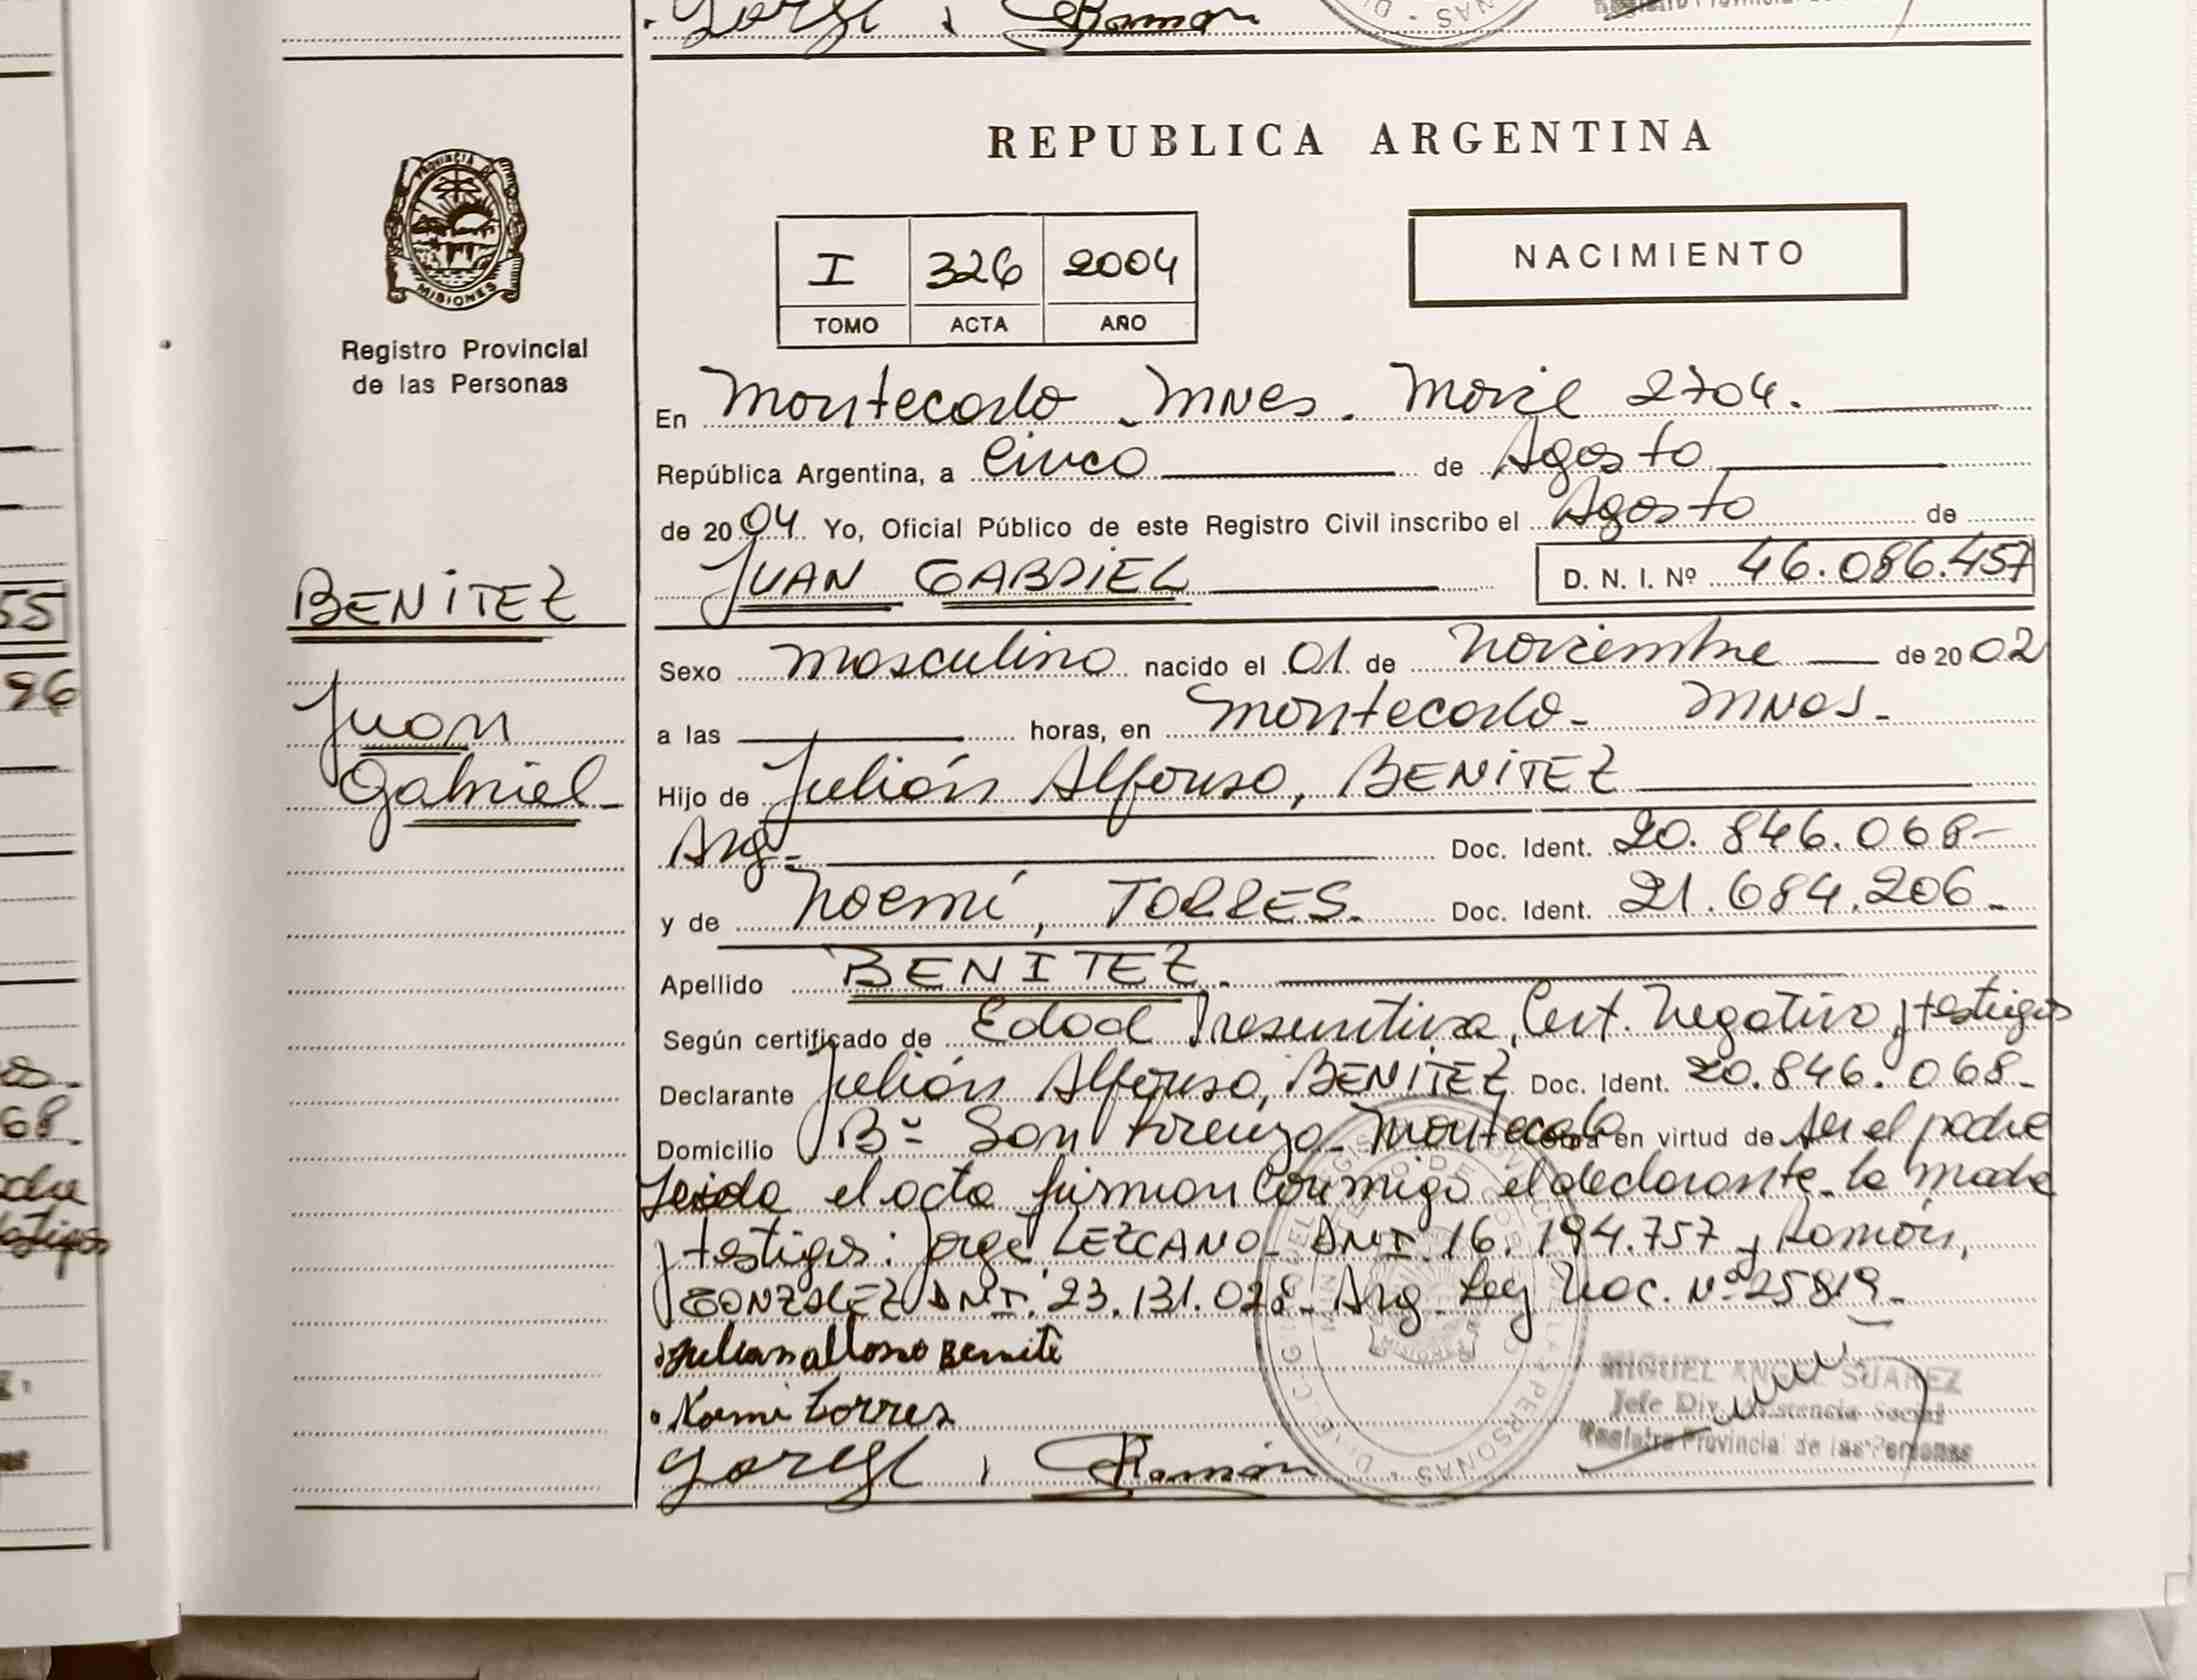 Jorge , Ramon
REPUBLICA ARGENTINA
PROVINCIA DE
MISIONES
Registro Provincial
de las Personas
NACIMIENTO
I 326 2004
TOMO ACTA AÑO
En Montecarlo Mnes. Movil 2704.
República Argentina, a Cinco de Agosto
de 2004 Yo, Oficial Público de este Registro Civil inscribo el Agosto de
JUAN GABRIEL D. N. I. Nº 46.086.457
BENITEZ
Juan
Gabriel
Sexo masculino nacido el 01 de Noviembre de 2002
a las horas, en Montecarlo - Mnes -
Hijo de Julián Alfonso, BENITEZ
Arg - Doc. Ident. 20.846.068 -
y de Noemí, TORRES. Doc. Ident. 21.684.206 -
Apellido BENITEZ.
Según certificado de Edad Presuntiva, Cert. Negativo y testigos
Declarante Julián Alfonso, BENITEZ Doc. Ident. 20.846.068 -
Domicilio Bº San Lorenzo - Montecarlo en virtud de ser el padre
Leida el acta firman conmigo el declarante - la madre
y testigos: Jorge LEZCANO - DNI. 16.194.757 y Ramón,
GONZALEZ DNI. 23.131.028 - Arg - Ley Nac. Nº 25819 -
Julian alfonso Benite
Noemi torres
Jorge , Ramón
MIGUEL ANGEL SUAREZ
Jefe Div. Asistencia Social
Registro Provincial de las Personas
55
96
68.